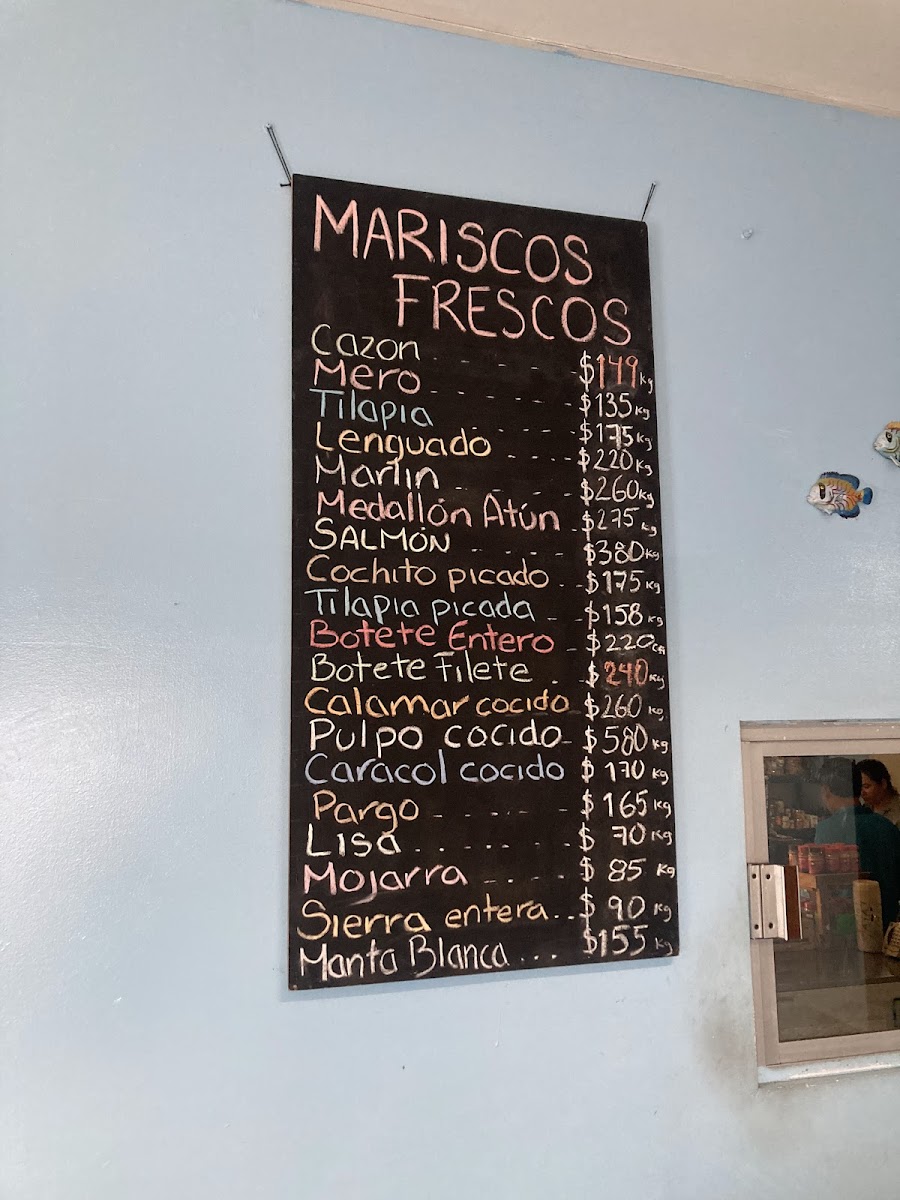 MARISCOS
FRESCOS
Cazon - - - - - $149 kg
Mero - - - - - $135 kg
Tilapia - - - - $175 kg
Lenguado - - - - $220 kg
Marlin - - - - - $260 kg
Medallón Atún - $275 kg
SALMÓN - - - - $380 kg
Cochito picado - - $175 kg
Tilapia picada - - $158 kg
Botete Entero - $220
Botete Filete - - $240 kg
Calamar cocido - $260 kg
Pulpo cocido - $580 kg
Caracol cocido $170 kg
Pargo - - - - - $165 kg
Lisa . . . . . . $70 kg
Mojarra - - - - $85 kg
Sierra entera . . $90 kg
Manta Blanca . . . $155 kg